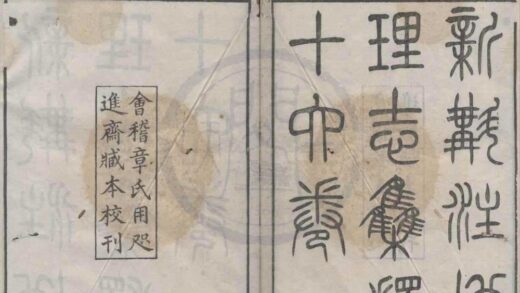 新斠注地
理志集釋
十六卷
會稽章氏用咫
進齋臧本校刊